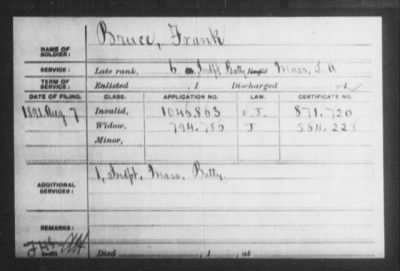 Bruce, Frank
NAME OF SOLDIER:
SERVICE: Late rank, 6 Indpt Batty Mass, L A
TERM OF SERVICE: Enlisted , 1 Discharged , 1
DATE OF FILING. CLASS. APPLICATION NO. LAW. CERTIFICATE NO.
1891 Aug 7 Invalid, 1046863 J. 871.720
Widow, 794.786 J 564.228
Minor,
1, Indpt. Mass. Batty.
ADDITIONAL SERVICES:
REMARKS:
Died , 1 , at